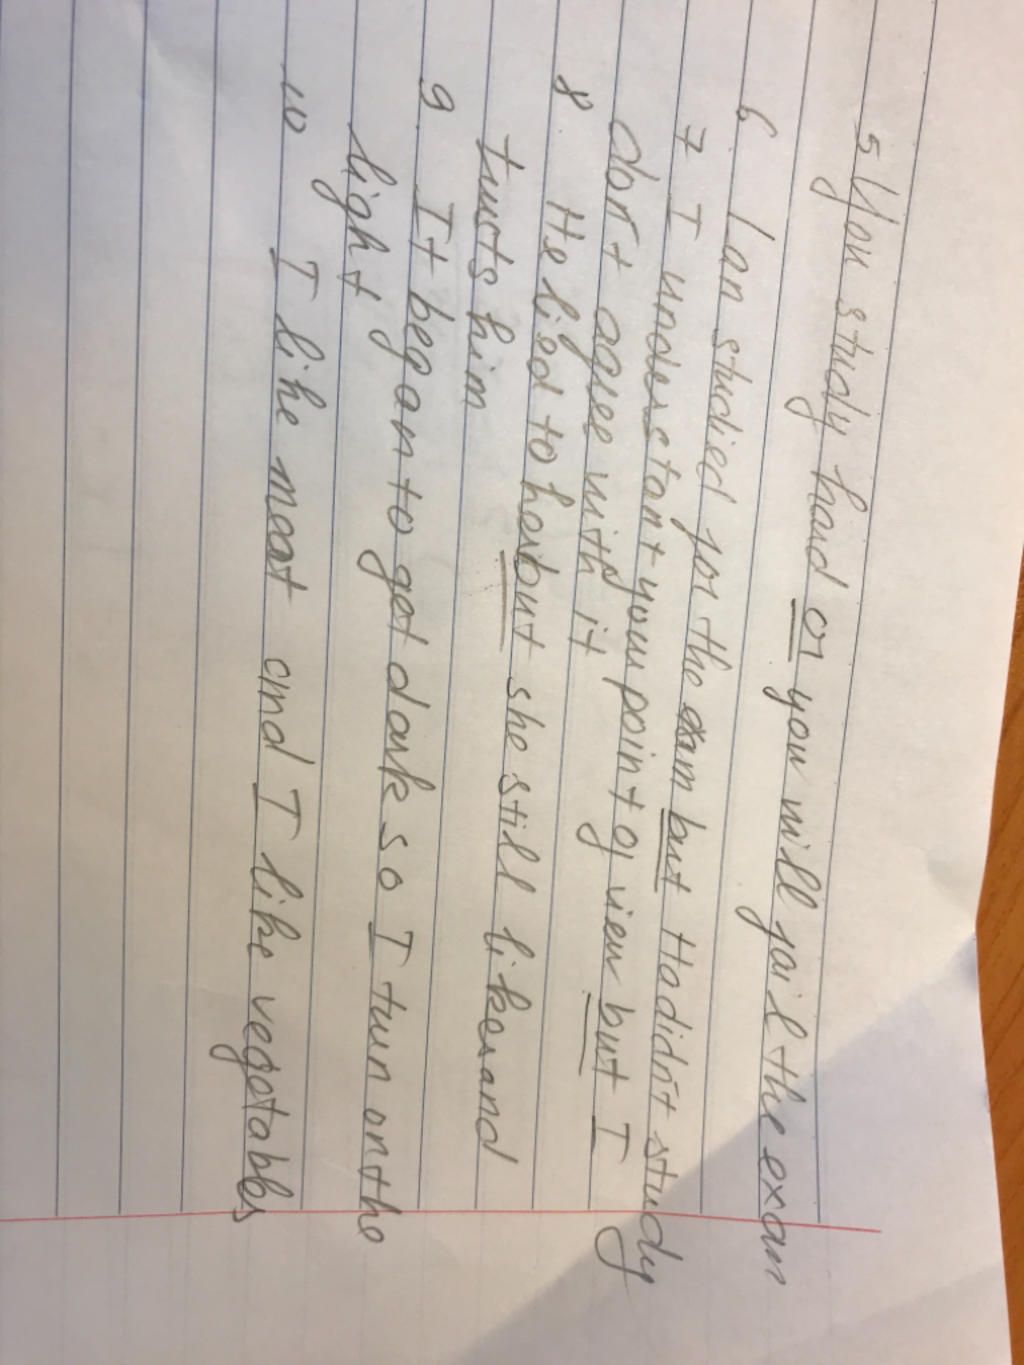 5 You study hard or you will fail the exam
6 Ian studied for the exam but Hadidn't study
7 I understant your point of view but I
don't agree with it
8 He lied to her but she still likes and
trusts him
9 It began to get dark so I turn on the
light
10 I like meat and I like vegetables